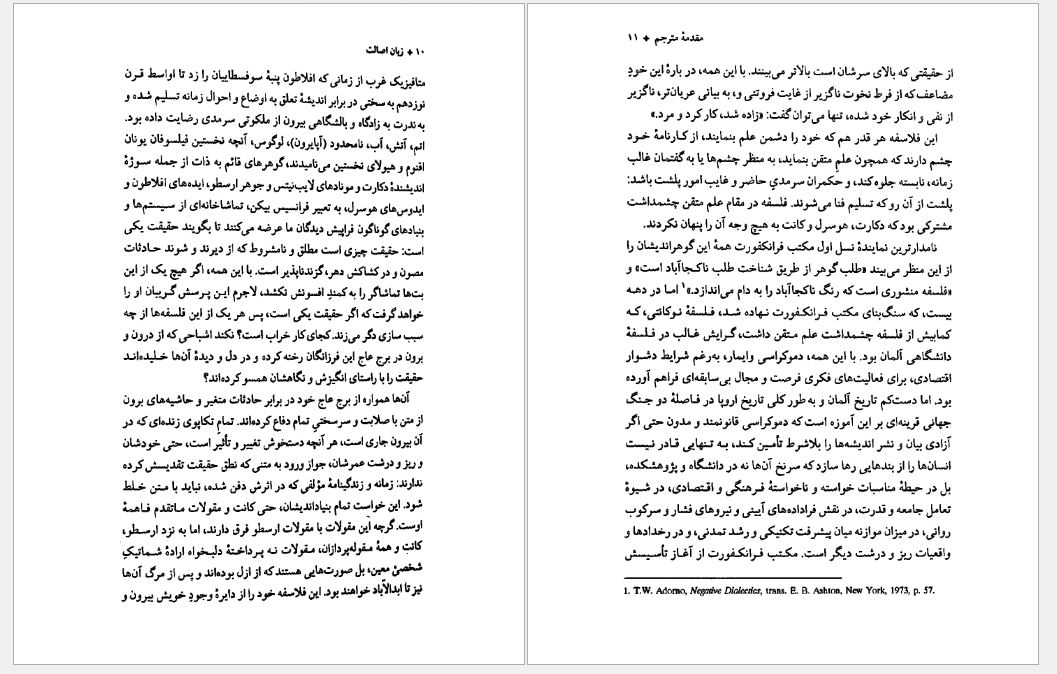 ۱۰ ✦ زبان اصالت
متافیزیک غرب از زمانی که افلاطون پنبهٔ سوفسطاییان را زد تا اواسط قرن
نوزدهم به سختی در برابر اندیشهٔ تعلق به اوضاع و احوال زمانه تسلیم شده و
به‌ندرت به زادگاه و بالشگاهی بیرون از ملکوتی سرمدی رضایت داده بود.
اتم، آتش، آب، نامحدود (آپایرون)، لوگوس، آنچه نخستین فیلسوفان یونان
اقنوم و هیولای نخستین می‌نامیدند، گوهرهای قائم به ذات از جمله سوژهٔ
اندیشندهٔ دکارت و مونادهای لایب‌نیتس و جوهر ارسطو، ایده‌های افلاطون و
ایدوس‌های هوسرل، به تعبیر فرانسیس بیکن، تماشاخانه‌ای از سیستم‌ها و
بنیادهای گوناگون فراپیش دیدگان ما عرضه می‌کنند تا بگویند حقیقت یکی
است: حقیقت چیزی است مطلق و نامشروط که از دیرند و شوند حادثات
مصون و در کشاکش دهر، گزندناپذیر است. با این همه، اگر هیچ یک از این
بت‌ها تماشاگر را به کمندِ افسونش نکشد، لاجرم این پرسش گریبان او را
خواهد گرفت که اگر حقیقت یکی است، پس هر یک از این فلسفه‌ها از چه
سبب سازی دگر می‌زند. کجای کار خراب است؟ نکند اشباحی که از درون و
برون در برج عاج این فرزانگان رخنه کرده و در دل و دیدهٔ آن‌ها خلیده‌اند
حقیقت را با راستای انگیزش و نگاهشان همسو کرده‌اند؟
آن‌ها همواره از برج عاج خود در برابر حادثات متغیر و حاشیه‌های برون
از متن با صلابت و سرسختیِ تمام دفاع کرده‌اند. تمامِ تکاپوی زنده‌ای که در
آن بیرون جاری است، هر آنچه دستخوش تغییر و تأثیر است، حتی خودشان
و ریز و درشت عمرشان، جواز ورود به متنی که نطق حقیقت تقدیسش کرده
ندارند: زمانه و زندگینامهٔ مؤلفی که در اثرش دفن شده، نباید با متن خلط
شود. این خواست تمام بنیاداندیشان، حتی کانت و مقولات ماتقدم فاهمهٔ
اوست. گرچه این مقولات با مقولات ارسطو فرق دارند، اما به نزد ارسطو،
کانت و همهٔ مقوله‌پردازان، مقولات نه پرداختهٔ دلبخواه ارادهٔ شماتیکِ
شخصیْ معین، بل صورت‌هایی هستند که از ازل بوده‌اند و پس از مرگ آن‌ها
نیز تا ابدالآباد خواهند بود. این فلاسفه خود را از دایرهٔ وجودِ خویش بیرون و
مقدمهٔ مترجم ✦ ۱۱
از حقیقتی که بالای سرشان است بالاتر می‌بینند. با این همه، در بارهٔ این خودِ
مضاعف که از فرط نخوت ناگزیر از غایت فروتنی و، به بیانی عریان‌تر، ناگزیر
از نفی و انکار خود شده، تنها می‌توان گفت: «زاده شد، کار کرد و مرد.»
این فلاسفه هر قدر هم که خود را دشمن علم بنمایند، از کارنامهٔ خود
چشم دارند که همچون علمِ متقن بنماید، به منظر چشم‌ها یا به گفتمان غالب
زمانه، نابسته جلوه کند، و حکمران سرمدیِ حاضر و غایب امور پلشت باشد:
پلشت از آن رو که تسلیم فنا می‌شوند. فلسفه در مقام علم متقن چشمداشت
مشترکی بود که دکارت، هوسرل و کانت به هیچ وجه آن را پنهان نکردند.
نامدارترین نمایندهٔ نسل اول مکتب فرانکفورت همهٔ این گوهراندیشان را
از این منظر می‌بیند «طلب گوهر از طریق شناخت طلب ناکجاآباد است» و
«فلسفه منشوری است که رنگ ناکجاآباد را به دام می‌اندازد.»۱ اما در دهه
بیست، که سنگ‌بنای مکتب فرانکفورت نهاده شد، فلسفهٔ نوکانتی، که
کمابیش از فلسفه چشمداشت علم متقن داشت، گرایش غالب در فلسفهٔ
دانشگاهی آلمان بود. با این همه، دموکراسی وایمار، به‌رغم شرایط دشوار
اقتصادی، برای فعالیت‌های فکری فرصت و مجال بی‌سابقه‌ای فراهم آورده
بود. اما دست‌کم تاریخ آلمان و به‌طور کلی تاریخ اروپا در فاصلهٔ دو جنگ
جهانی قرینه‌ای بر این آموزه است که دموکراسی قانونمند و مدون حتی اگر
آزادی بیان و نشر اندیشه‌ها را بلاشرط تأمین کند، به تنهایی قادر نیست
انسان‌ها را از بندهایی رها سازد که سرنخ آن‌ها نه در دانشگاه و پژوهشکده،
بل در حیطهٔ مناسبات خواسته و ناخواستهٔ فرهنگی و اقتصادی، در شیوهٔ
تعامل جامعه و قدرت، در نقش فراداده‌های آیینی و نیروهای فشار و سرکوب
روانی، در میزان موازنه میان پیشرفت تکنیکی و رشد تمدنی، و در رخدادها و
واقعیات ریز و درشت دیگر است. مکتب فرانکفورت از آغاز تأسیسش
1. T.W. Adorno, Negative Dialectics, trans. E. B. Ashton, New York, 1973, p. 57.